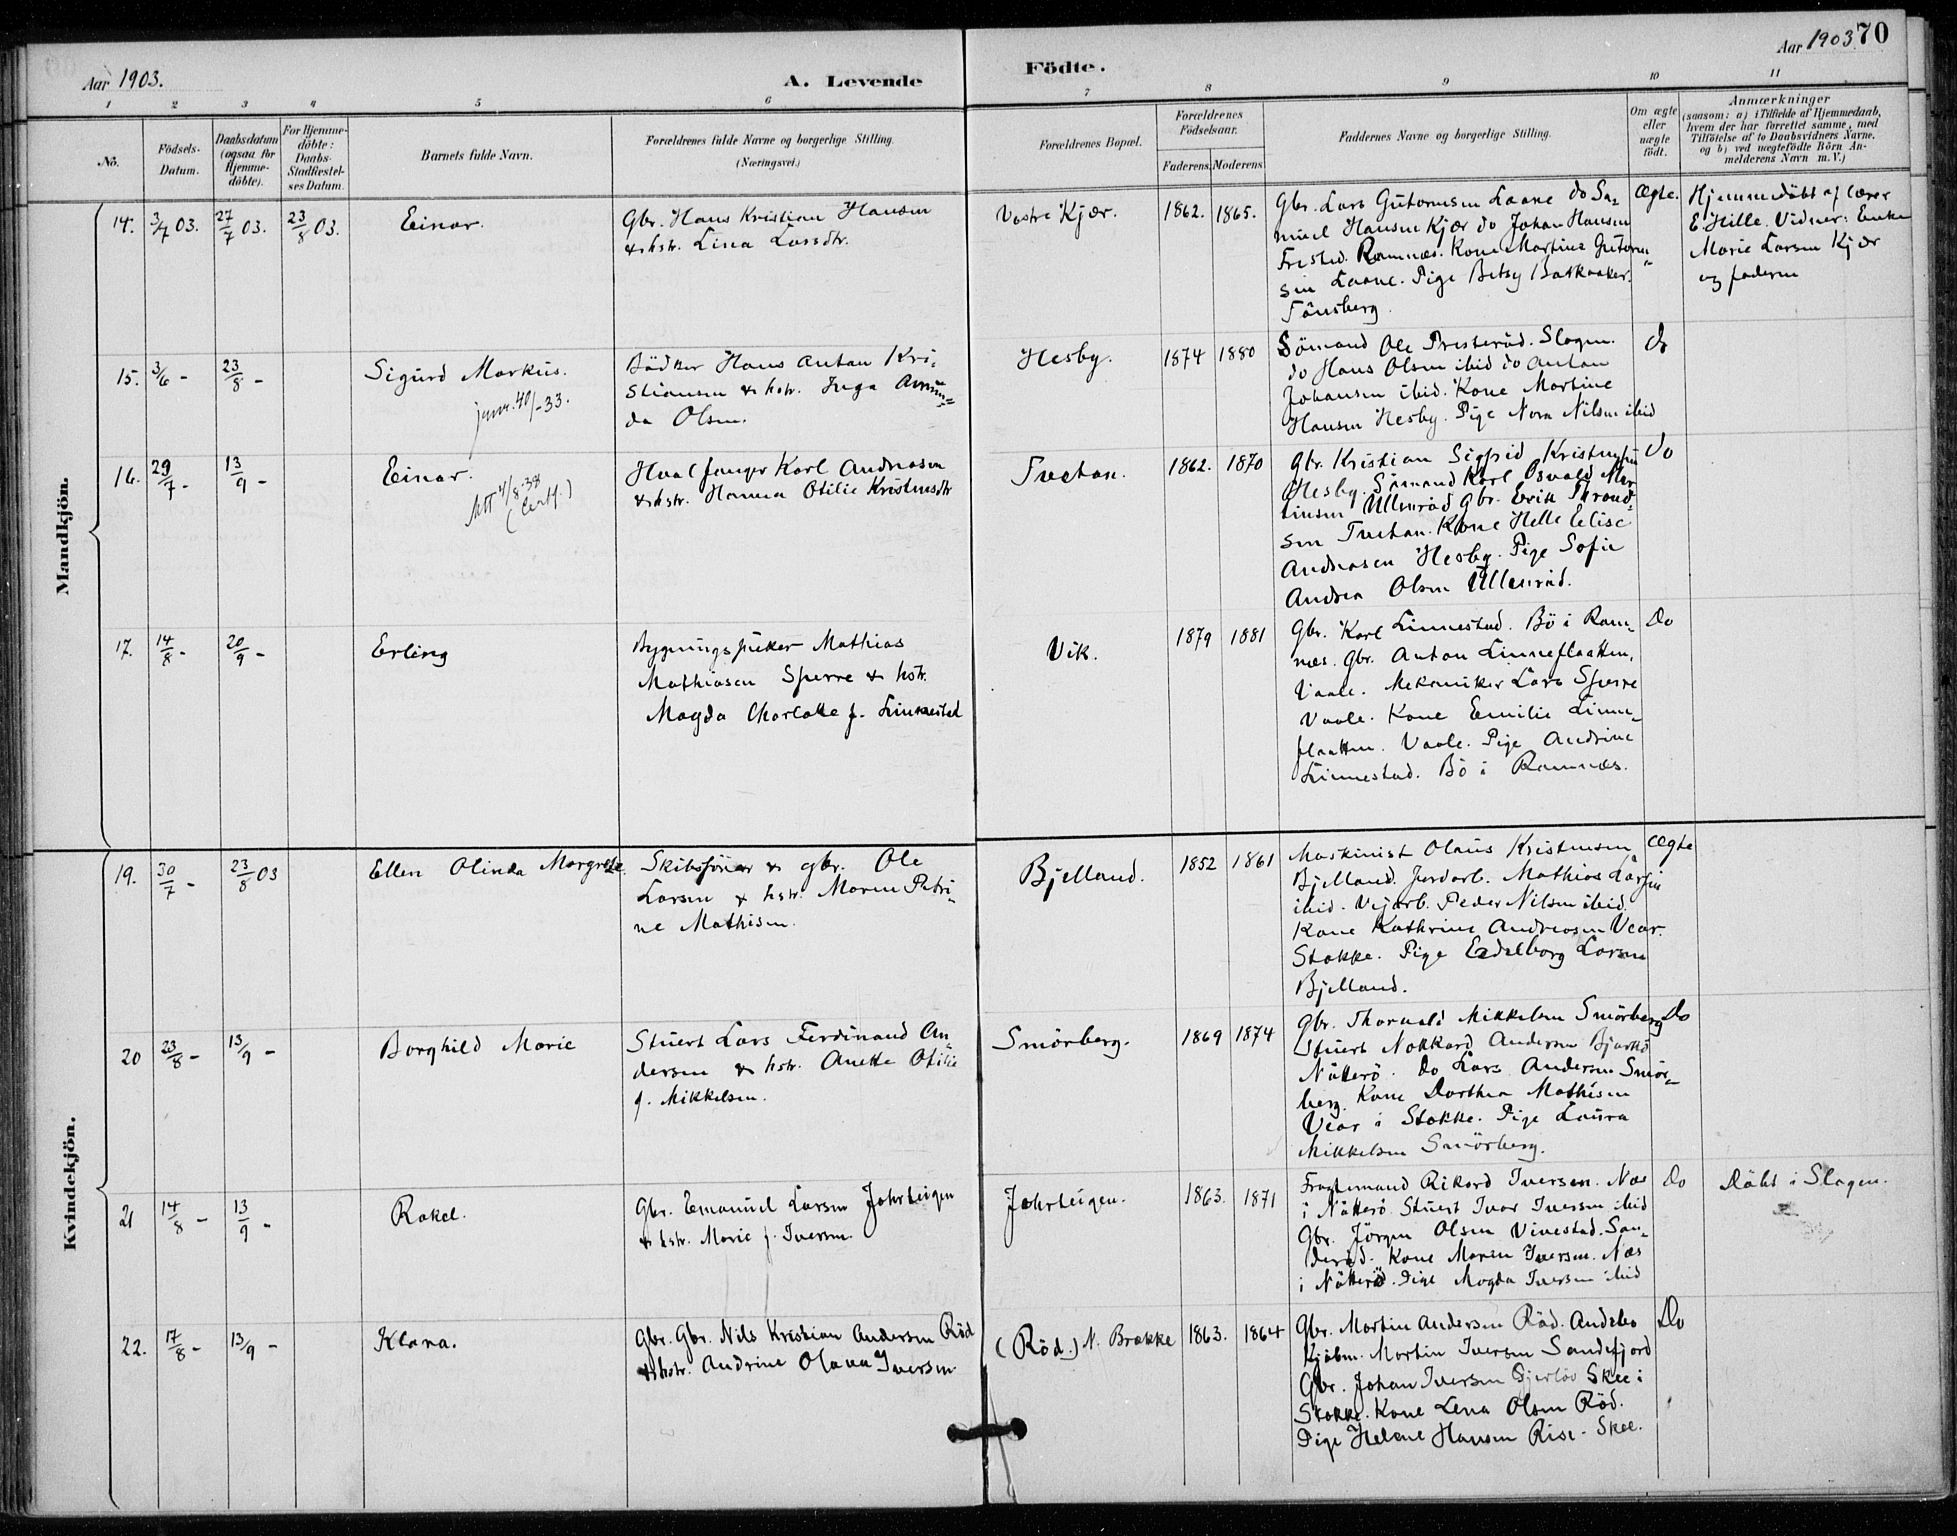 Aar 1903.
A. Levende
Födte.
Aar 1903. 70
1 2 3 4 5 6 7 8 9 10 11
No.
Födsels-Datum.
Daabsdatum (ogsaa for Hjemme-döbte).
For Hjemme-döbte: Daabs-Stadfæstel-ses Datum.
Barnets fulde Navn.
Forældrenes fulde Navne og borgerlige Stilling.
(Næringsvei.)
Forældrenes Bopæl.
Forældrenes Födselsaar.
Faderens. Moderens.
Faddernes Navne og borgerlige Stilling.
Om ægte eller uægte födt.
Anmærkninger
(saasom: a) i Tilfælde af Hjemmedaab,
hvem der har forrettet samme, med
Tilföielse af to Daabsvidners Navne,
og b) ved uægtefödte Börn An-
melderens Navn m. V.)
Mandkjön.
14. 3/7 03. 27/7 03. 23/8 03. Einar.
Gbr. Hans Kristian Hansen
& hstr. Lina Larsdtr.
Vestre Kjær. 1862. 1865.
Gbr. Lars Gutormsen Laane do Sa-
muel Hansen Kjær do Johan Hansen
Frested. Ramnæs. Kone Martine Gutorm-
sen Laane. Pige Betsy Bakkaaker.
Tönsberg.
Ægte.
Hjemmedöbt af lærer
E. Hille. Vidner: Enke
Marie Larsen Kjær
og faderen
15. 3/6 - 23/8 - Sigurd Markus.
Bödker Hans Anton Kri-
stiansen & hstr. Inga Amun-
da Olsen.
Hesby. 1874 1880
Sömand Ole Presteröd. Slagen.
do Hans Olsen ibid do Anton
Johansen ibid. Kone Martine
Hansen Hesby. Pige Nora Nilsen ibid
do
16. 29/7 - 13/9 - Einar.
Att 4/8-38
Hvalfanger Karl Andreasen
& hstr. Hanna Otilie Kristensdtr
Tveitan. 1862. 1870
Gbr. Kristian Sigfrid Kristensen
Hesby. Sömand Karl Osvald Mar-
tinsen Ullenröd Gbr. Erik Thrond-
sen Tveitan. Kone Helle Elise
Andreasen Hesby. Pige Sofie
Andrea Olsen Ullenröd.
do
17. 14/8 - 20/9 - Erling
Bygningssnekker Mathias
Mathiasen Sperre & hstr.
Magda Charlotte f. Linnestad
Vik. 1879 1881
Gbr. Karl Linnestad. Bö i Ram-
næs. Gbr. Anton Linneflaatten,
Vaale. Mekaniker Lars Sperre
Vaale. Kone Emilie Linne-
flaatten. Vaale. Pige Andrine
Linnestad. Bö i Ramnæs.
Do
Kvindekjön.
19. 30/7 - 23/8 03 Ellen Olinda Margrete.
Skibsförer & gbr. Ole
Larsen & hstr. Maren Petri-
ne Mathisen.
Bjelland. 1852 1861
Maskinist Olaus Kristensen
Bjelland. Jordarb. Mathias Larsen
ibid. Vejarb. Peder Nilsen ibid.
Kone Kathrine Andreasen Vear.
Stokke. Pige Edelborg Larsen
Bjelland.
Ægte
20 23/8 - 13/9 - Borghild Marie
Stuert Lars Ferdinand An-
dersen & hstr. Anette Otilie
f. Mikkelsen.
Smörberg. 1869 1874
Gbr. Thorvald Mikkelsen Smörberg
Stuert Andersen
Nötterö. Do Lars Andersen Smör-
berg. Kone Dorthea Mathisen
Vear i Stokke. Pige Laura
Mikkelsen Smörberg.
Do
21 14/8 - 13/9 - Rakel.
Gbr. Emanuel Larsen Jahrteigen
& hstr. Marie f. Iversen.
Jahrteigen. 1863. 1871
Fragtemand Rikard Iversen. Næs
i Nötterö Stuert Ivar Iversen ibid
Gbr. Jörgen Olsen Vivestad. San-
deröd. Kone Maren Iversen. Næs
i Nötterö. Pige Magda Iversen ibid
Do
Döbt i Slagen.
22. 17/8 - 13/9 - Klara.
Gbr. Gbr. Nils Kristian Andersen Röd
& hstr. Andrine Olava Iversen.
(Röd.) N. Brække 1863. 1864
Gbr. Martin Andersen Röd. Andebo
Kjöbm. Martin Iversen Sandefjord
Gbr. Johan Iversen Gjerlöv Skee i
Stokke. Kone Lena Olsen Röd.
Pige Helene Hansen Rise - Skee.
Do